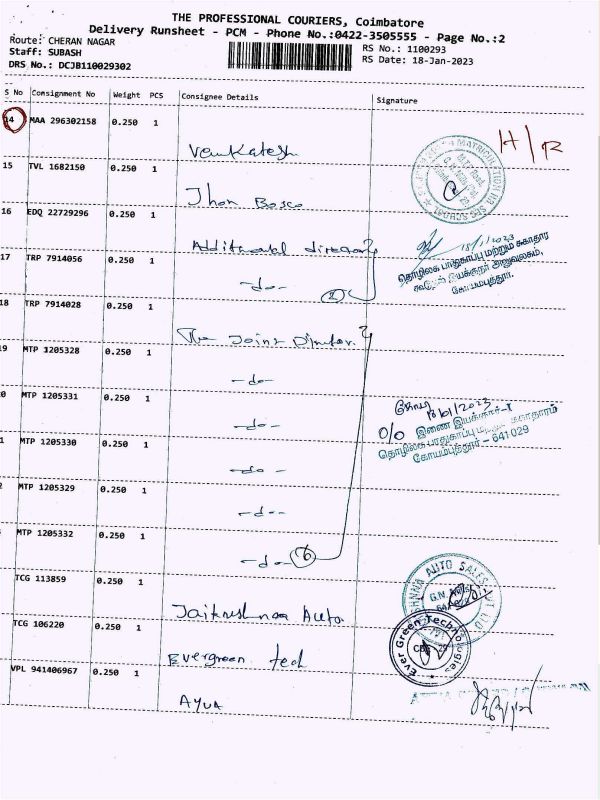 THE PROFESSIONAL COURIERS, Coimbatore
Delivery Runsheet - PCM - Phone No.:0422-3505555 - Page No.:2
Route: CHERAN NAGAR
RS No.: 1100293
Staff: SUBASH
RS Date: 18-Jan-2023
DRS No.: DCJB110029302
S No Consignment No Weight PCS Consignee Details Signature
14 MAA 296302158 0.250 1
H/R
Venkatesh
15 TVL 1682150 0.250 1
Jhon Bosco
16 EDQ 22729296 0.250 1
Additional
18/1/2023
தொழிலக பாதுகாப்பு மற்றும் சுகாதார
17 TRP 7914056 0.250 1
-do-
2
கோயம்புத்தூர்.
18 TRP 7914028 0.250 1
The Joint Director
9 MTP 1205328 0.250 1
-do-
0 MTP 1205331 0.250 1
18/01/2023
-do-
O/o இணை இயக்குநர்-I
1 MTP 1205330 0.250 1
தொழிலக பாதுகாப்பு சுகாதாரம்
கோயம்புத்தூர் - 641 029
-do-
MTP 1205329 0.250 1
-do-
MTP 1205332 0.250 1
-do- 6
TCG 113859 0.250 1
AUTO SALES
G.N. Mills
Jaikrishnaa Auto
TCG 106220 0.250 1
Ever Green Technologies
Evergreen tecl
VPL 941406967 0.250 1